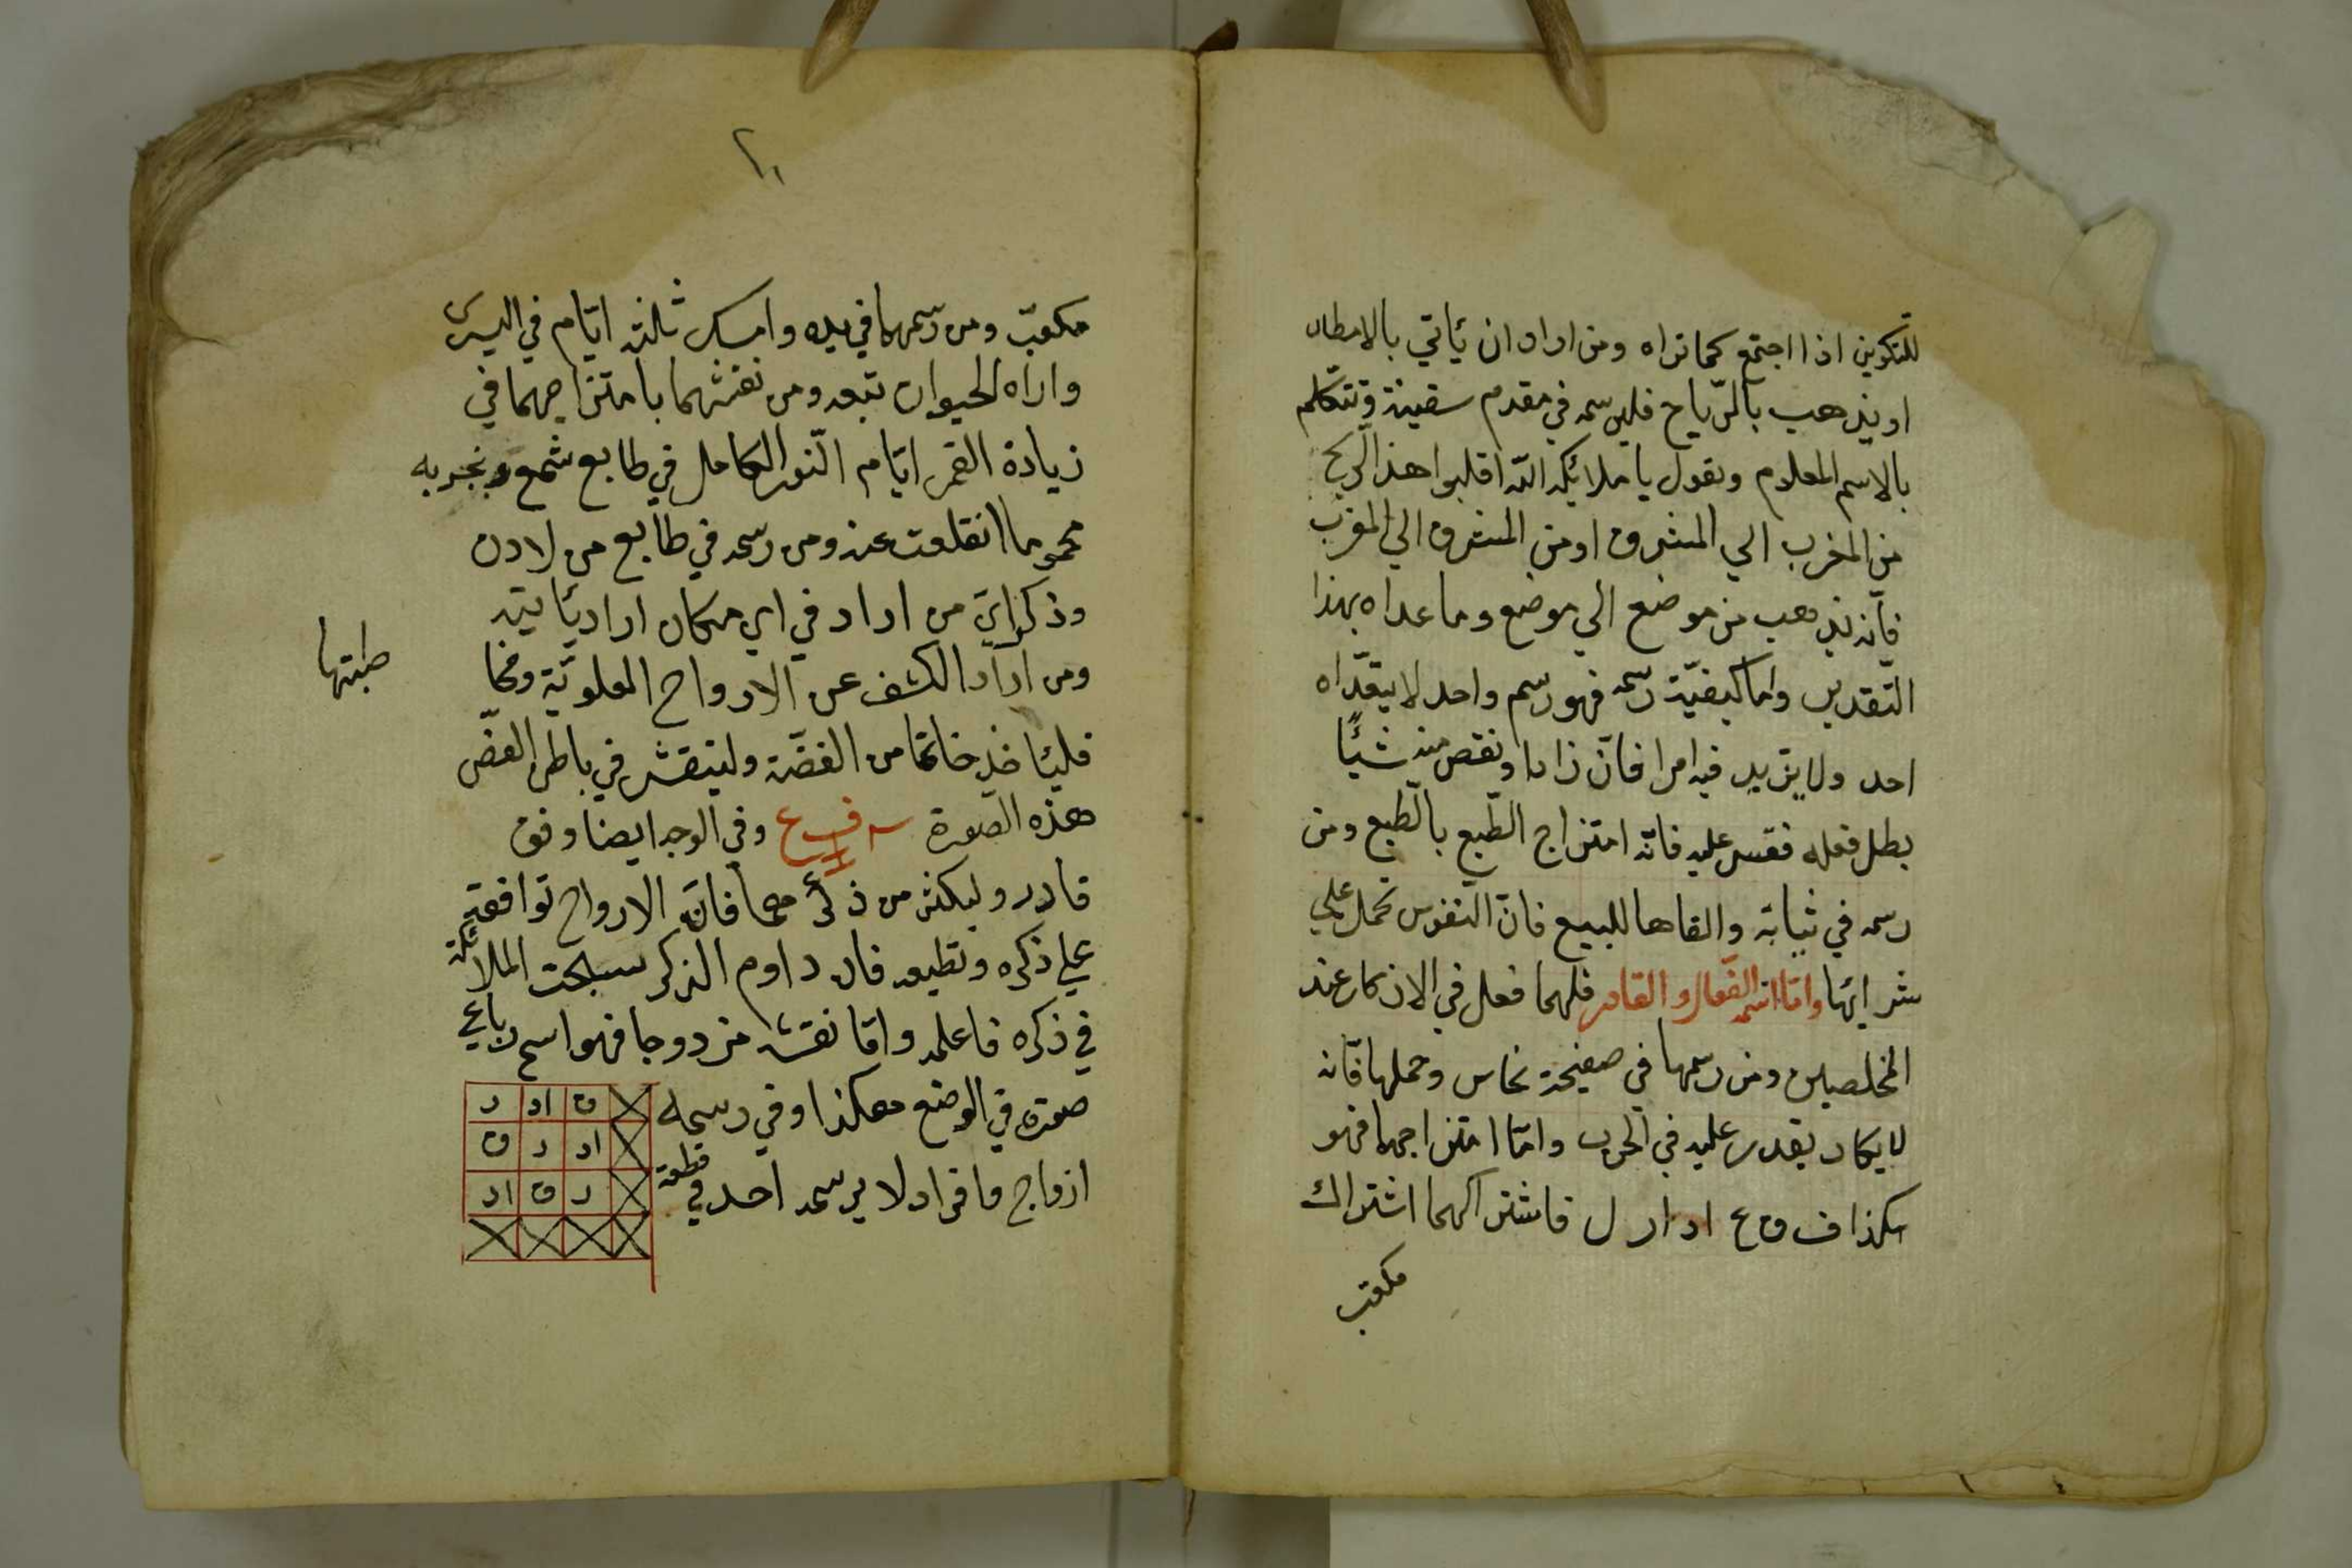 للتكوين اذا اجتمع كما تراه ومن اراد ان ئاتي بالامطار
او يذهب بالرّياح فليرسمه في مقدم سفينة وتتكلم
بالاسم المعلوم وتقول يا ملائكة الله اقلبوا هذا الريح
من المغرب الي المشرق او من المشرق الي المغرب
فانّه يذهب من موضع الي موضع وما عداه بهذا
التقدير واما كيفيّة رسمه فهو رسم واحد لا يتعدّاه
احد ولا يزيد فيه امرا فانّ زاد او نقص منه شئًا
بطل فعله فقس عليه فانّه امتزاج الطّبع بالطّبع ومن
رسمه في ثيابة والقاها للبيع فانّ النفوس تحمل علي
شرائها وامّا اسمه الفعّال والقادر فلهما فعل في الاذكار عند
المخلصين ومن رسمها في صفيحة نحاس وحملها فانّه
لا يكاد يقدر عليه في الحرب وامّا امتزاجهما فهو
هكذا ف ق ع ا د ا ر ل فاشتراكهما اشتراك
مكعب
٢١
مكعبّ ومن رسمهما في يده وامسك ثلثة ايّام في اليسرى
واراه الحيوان تبعه ومن نقشهما بامتزاجهما في
زيادة القمر ايّام النّور الكامل في طابع شمع وبخر به
محموما انقلعت عنه ومن رسمه في طابع من لادن
وذكر ايّ من اراد في اي مكان اراد ئاتيه
ومن اراد الكشف عن الارواح العلويّة ومخا
طبتها
فلئاخذ خاتما من الفضّة ولينقش في باطن الفصّ
هذه الصورة وفي الوجه ايضا وفق
قادر وليكثر من ذكرهما فانّ الارواح توافقه
علي ذكره وتطيعه فان داوم الذكر سبحت الملائكة
في ذكره فاعلمه وامّا نقشه مزدوجا فهو اسم رباعي
صورته في الوضع هكذا وفي رسمه
ازواج وافراد لا يرسمه احد في قطعة
ق اد ر
اد ر ق
ر ق اد